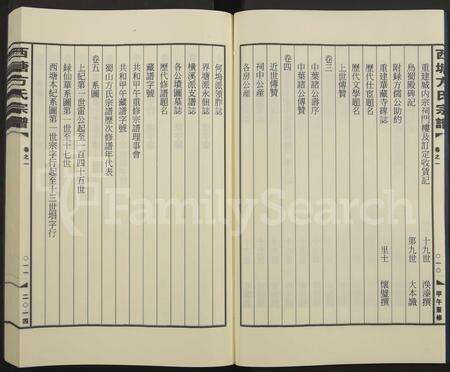 西塘方氏宗譜
卷之一
〇一〇
甲午重修
重建城內宗祠門樓及訂定收貲記 十九世 溴濠撰
烏蜀殿碑記 第九世 大本識
附錄方儒公助約
重建華藏寺碑誌 里士 懷璧撰
歷代仕宦題名
歷代文學題名
上世傳贊
卷三
中葉諸公壽序
中葉諸公傳贊
卷四
近世傳贊
祠中公產
各房公產
何塢派領胙誌
界塘派永佃誌
橫溪派支譜誌
各公墳圖墓誌
歷代修譜題名
藏譜字號
共和甲午重修宗譜理事會
共和甲午藏譜字號
蜀山方氏宗譜歷次修譜年代表
卷五 系圖
上紀第一世雷公起至一百四十五世
錄仙華系圖第一世至十七世
西塘本紀系圖第一世宗字行起至十三世垌字行
西塘方氏宗譜
卷之一
〇一一
二〇一四
FamilySearch